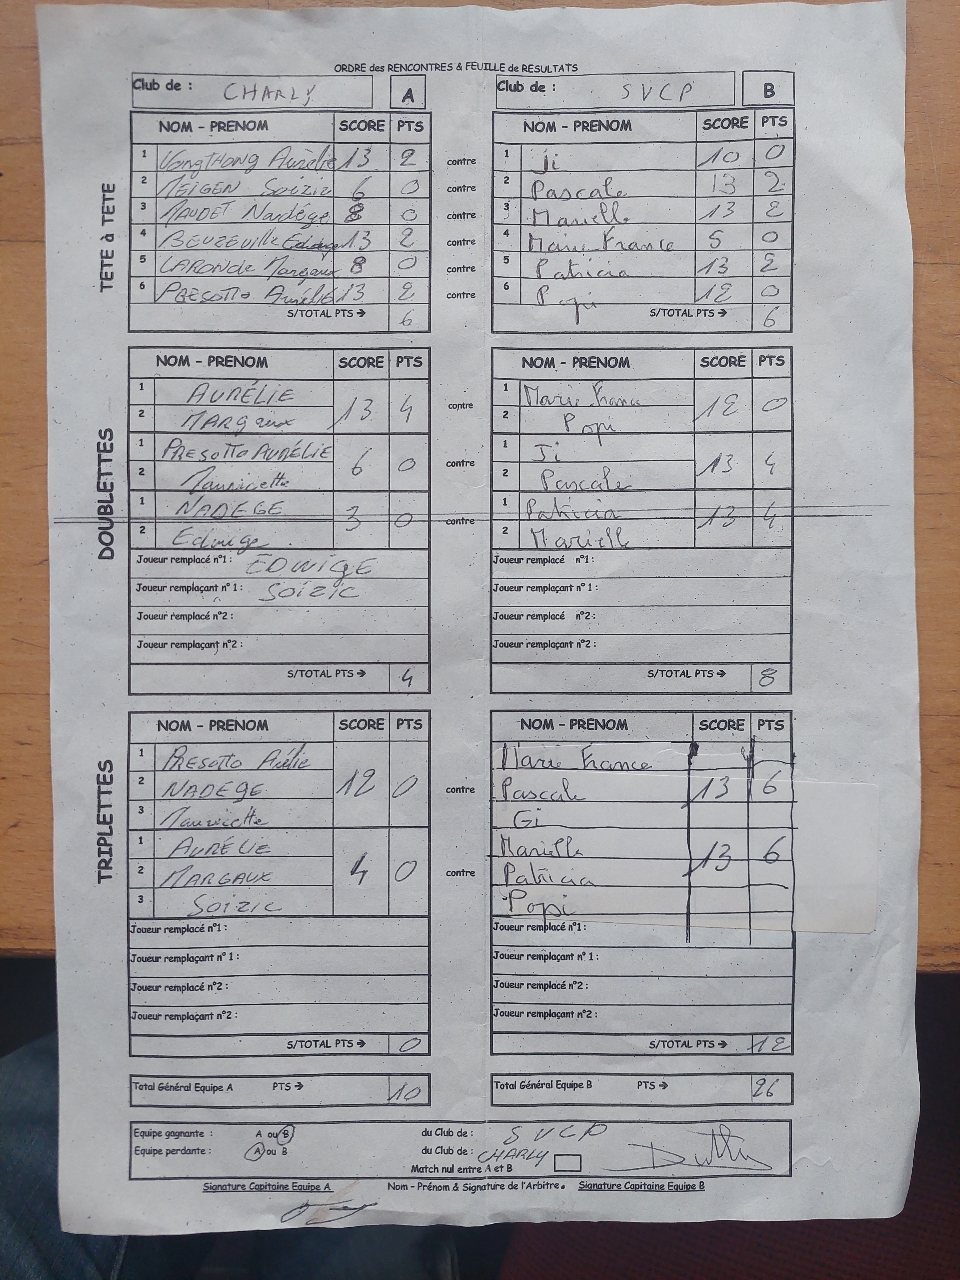 ORDRE des RENCONTRES & FEUILLE de RESULTATS
Club de : CHARLY A
Club de : SVCP B
TÊTE à TÊTE
NOM - PRENOM SCORE PTS
NOM - PRENOM SCORE PTS
1 VongTHONG Aurélie 13 2 contre 1 Ji 10 0
2 MEIGEN Soizic 6 0 contre 2 Pascale 13 2
3 NAUDET Nadége 8 0 contre 3 Marielle 13 2
4 BEUZEVille Edwige 13 2 contre 4 Marie France 5 0
5 LARONDE Margaux 8 0 contre 5 Patricia 13 2
6 PRESOTTO Aurélie 13 2 contre 6 Popi 12 0
S/TOTAL PTS → 6
S/TOTAL PTS → 6
DOUBLETTES
NOM - PRENOM SCORE PTS
NOM - PRENOM SCORE PTS
1 AURÉLIE
2 MARgaux 13 4
contre
1 Marie France
2 Popi 12 0
1 PRESOTTO AURÉLIE
2 Mauricette 6 0
contre
1 Ji
2 Pascale 13 4
1 NADEGE
2 Edwige 3 0
contre
1 Patricia
2 Marielle 13 4
Joueur remplacé n°1 : EDWIGE
Joueur remplaçant n° 1 : SOIZIC
Joueur remplacé n°2 :
Joueur remplaçant n°2 :
S/TOTAL PTS → 4
Joueur remplacé n°1 :
Joueur remplaçant n° 1 :
Joueur remplacé n°2 :
Joueur remplaçant n°2 :
S/TOTAL PTS → 8
TRIPLETTES
NOM - PRENOM SCORE PTS
NOM - PRENOM SCORE PTS
1 PRESOTTO Aurélie
2 NADÉGE 12 0
3 Mauricette
contre
Marie France
Pascale 13 6
Gi
1 AURÉLIE
2 MARGAUX 4 0
3 Soizic
contre
Marielle 13 6
Patricia
Popi
Joueur remplacé n°1 :
Joueur remplaçant n° 1 :
Joueur remplacé n°2 :
Joueur remplaçant n°2 :
S/TOTAL PTS → 0
Joueur remplacé n°1 :
Joueur remplaçant n° 1 :
Joueur remplacé n°2 :
Joueur remplaçant n°2 :
S/TOTAL PTS → 12
Total Général Equipe A PTS → 10
Total Général Equipe B PTS → 26
Equipe gagnante : A ou B du Club de : SVCP
Equipe perdante : A ou B du Club de : CHARLY
Match nul entre A et B
Signature Capitaine Equipe A Nom - Prénom & Signature de l'Arbitre. Signature Capitaine Equipe B